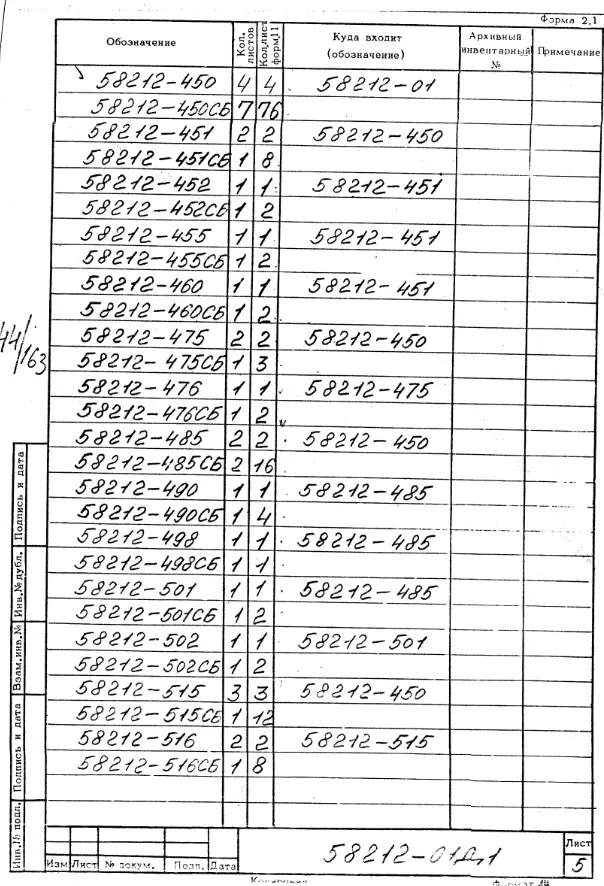 Форма 2,1
Обозначение Кол. листов Кол.лист форм.11 Куда входит (обозначение) Архивный инвентарный № Примечание
58212-450 4 4 58212-01
58212-450СБ 7 76
58212-451 2 2 58212-450
58212-451СБ 1 8
58212-452 1 1 58212-451
58212-452СБ 1 2
58212-455 1 1 58212-451
58212-455СБ 1 2
58212-460 1 1 58212-451
58212-460СБ 1 2
58212-475 2 2 58212-450
58212-475СБ 1 3
58212-476 1 1 58212-475
58212-476СБ 1 2
58212-485 2 2 58212-450
58212-485СБ 2 16
58212-490 1 1 58212-485
58212-490СБ 1 4
58212-498 1 1 58212-485
58212-498СБ 1 1
58212-501 1 1 58212-485
58212-501СБ 1 2
58212-502 1 1 58212-501
58212-502СБ 1 2
58212-515 3 3 58212-450
58212-515СБ 1 12
58212-516 2 2 58212-515
58212-516СБ 1 8
44/163
Подпись и дата
Инв.№ дубл.
Взам.инв.№
Подпись и дата
Инв.№ подл.
Изм Лист № докум. Подп. Дата
Лист
5
Копировал
Формат